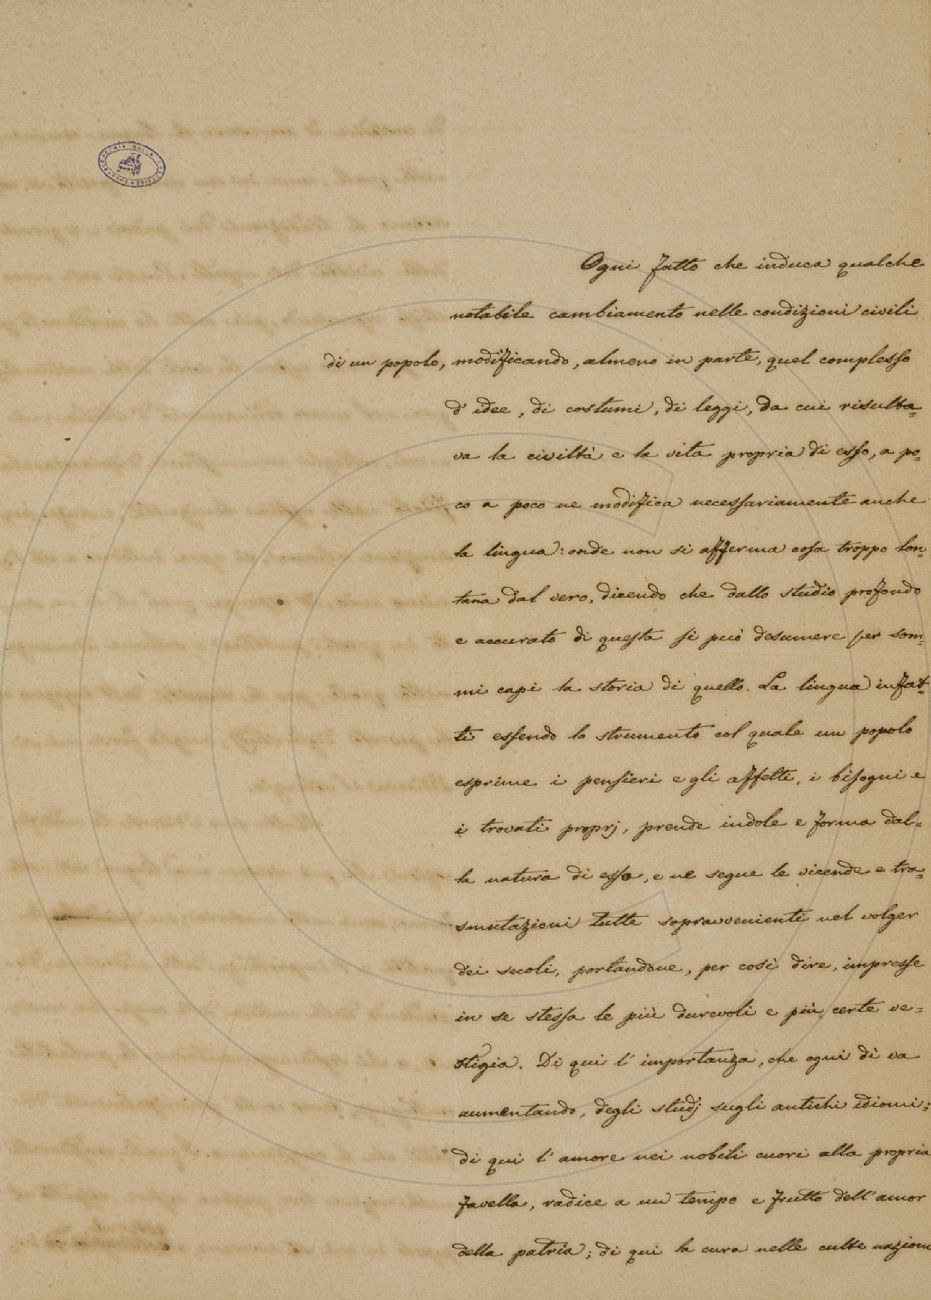 Ogni fatto che induca qualche
notabile cambiamento nelle condizioni civili
di un popolo, modificando, almeno in parte, quel complesso
d'idee, di costumi, di leggi, da cui risulta=
va la civiltà e la vita propria di esso, a po=
co a poco ne modifica necessariamente anche
la lingua: onde non si afferma cosa troppo lon=
tana dal vero, dicendo che dallo studio profondo
e accurato di questa si può desumere per som=
mi capi la storia di quello. La lingua infat=
ti essendo lo strumento col quale un popolo
esprime i pensieri e gli affetti, i bisogni e
i trovati proprj, prende indole e forma dal=
la natura di esso, e ne segue le vicende e tra=
smutazioni tutte sopravvenienti nel volger
dei secoli, portandone, per così dire, impresse
in se stessa le più durevoli e più certe ve=
stigia. Di qui l'importanza, che ogni dì va
aumentando, degli studj sugli antichi idiomi;
di qui l'amore nei nobili cuori alla propria
favella, radice a un tempo e frutto dell'amor
della patria; di qui la cura nelle culte nazioni